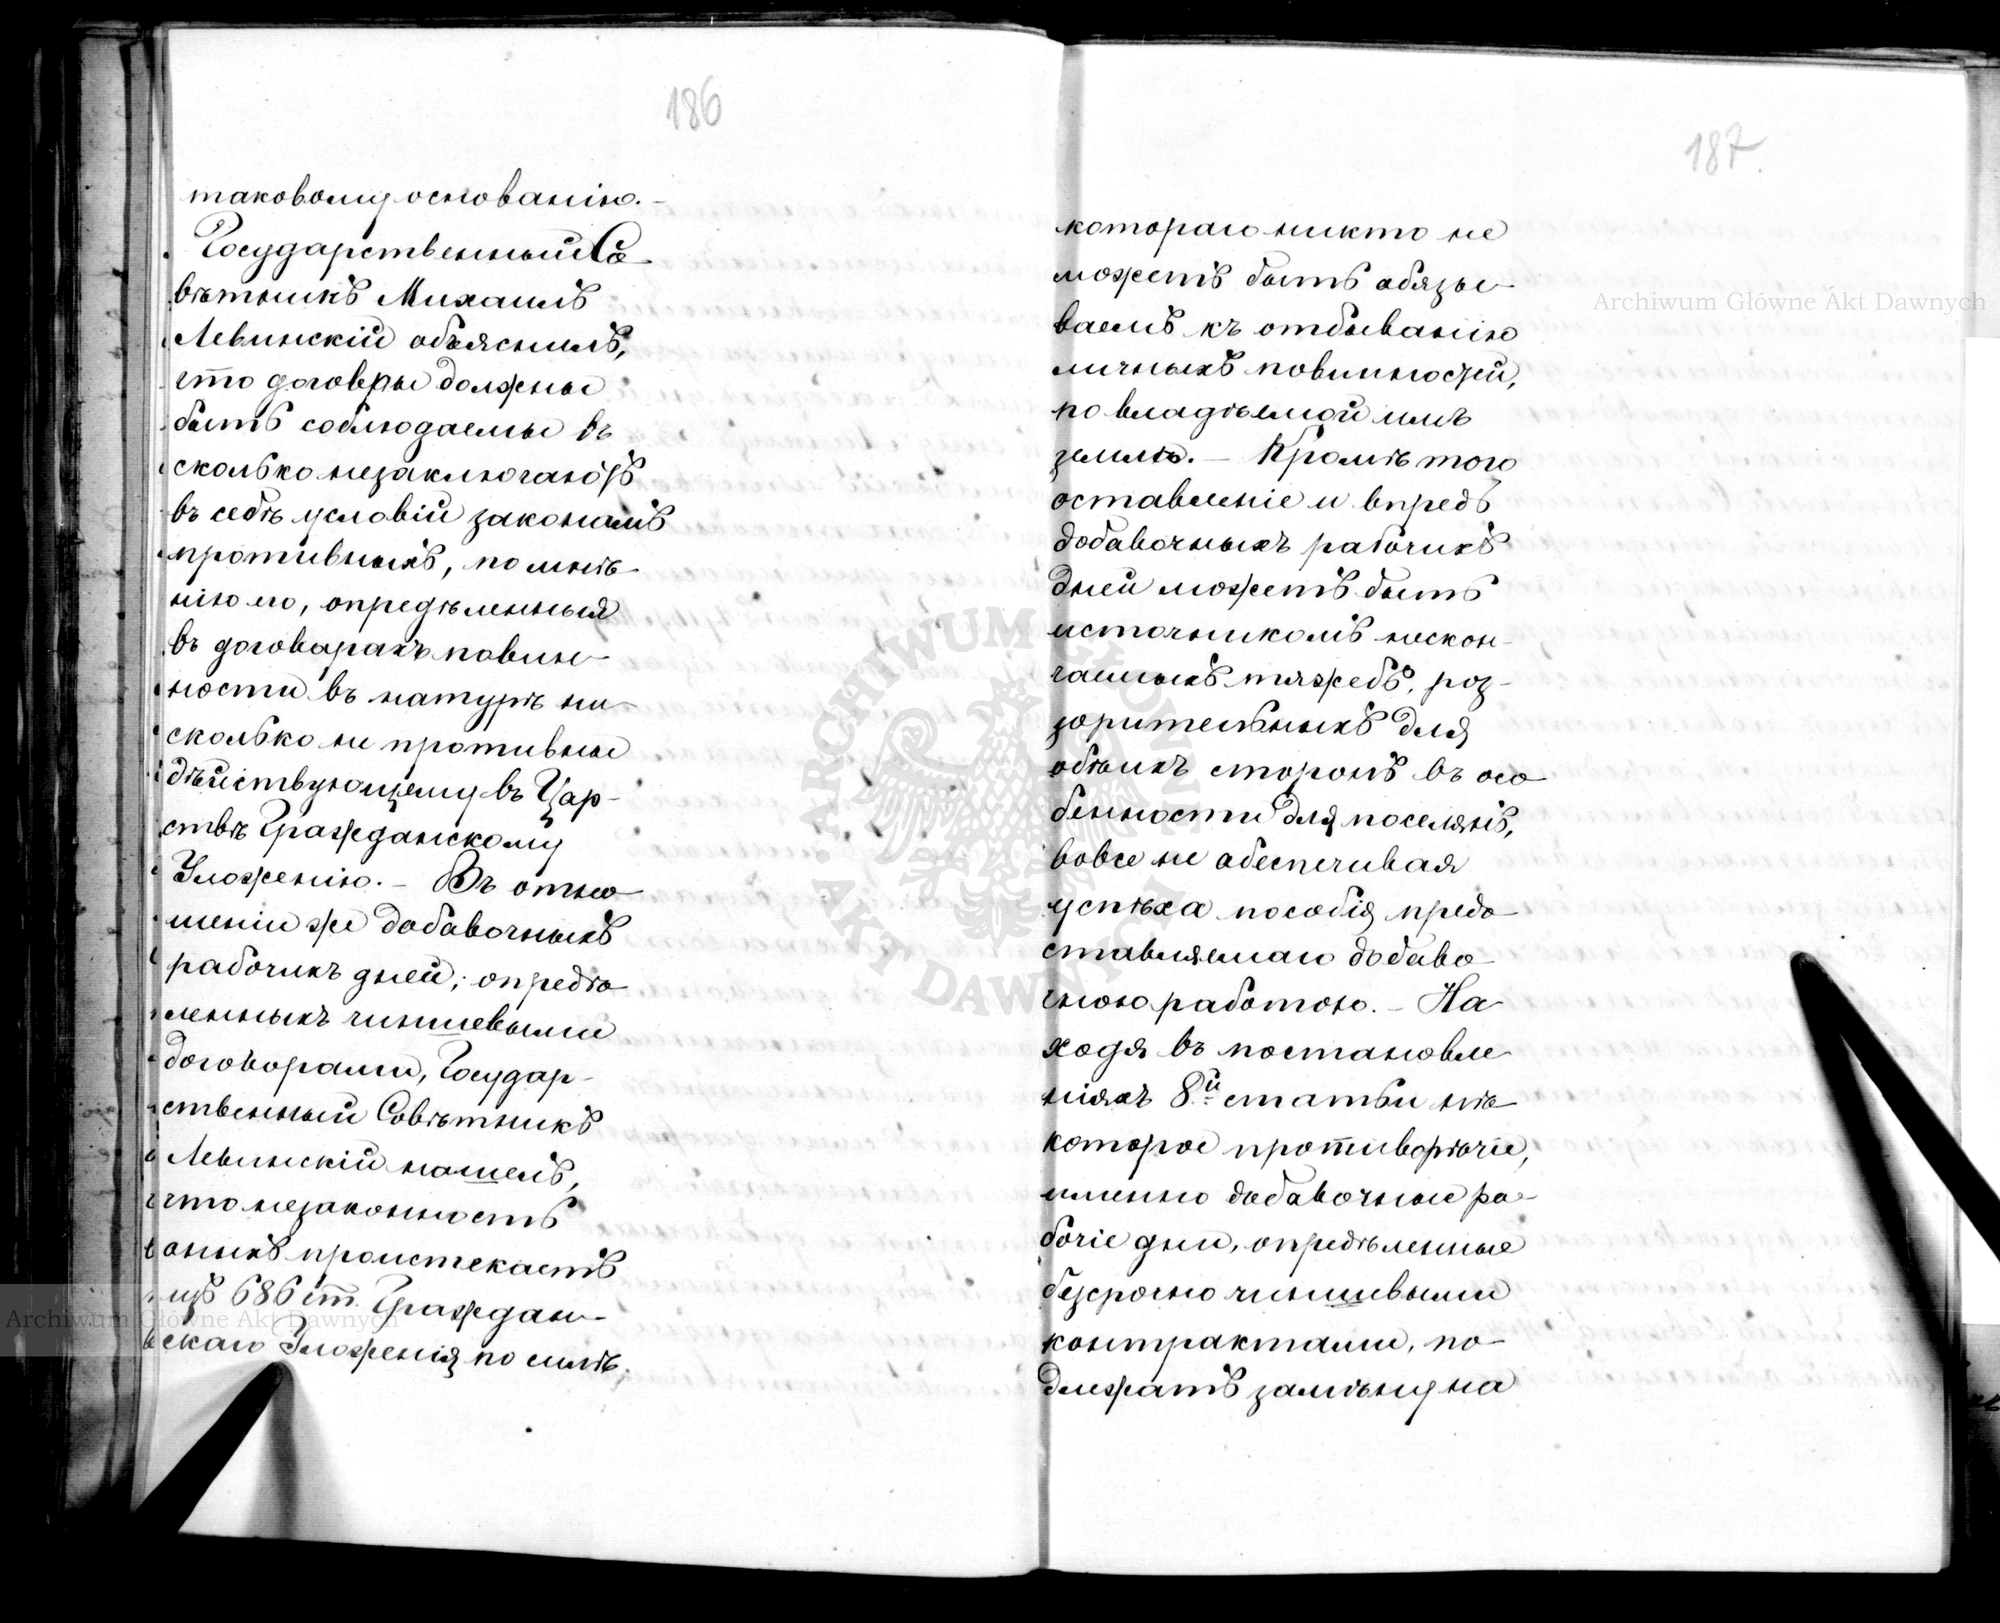 186
таковому основанію.-
Государственный Со-
вѣтникъ Михаилъ
Левинскій объяснилъ,
что договры должны
быть соблюдаемы въ
сколько незаключаютъ
въ себѣ условій законамъ
противныхъ, по мнѣ-
нію его, опредѣленныя
въ договорахъ повин-
ности въ натурѣ ни-
сколько не противны
дѣйствующему въ Цар-
ствѣ Гражданскому
Уложенію.- Въ отно-
шеніи же добавочныхъ
рабочихъ дней, опредѣ-
ленныхъ чиншевыми
договорами, Государ-
ственный Совѣтникъ
Левинскій нашелъ,
что незаконность
оныхъ проистекаетъ
изъ 686 ст. Граждан-
скаго Уложенія по силѣ
187.
котораго никто не
можетъ быть обязы-
ваемъ къ отбыванію
личныхъ повинностей,
по владѣемой имъ
землѣ.- Кромѣ того
оставленіе и впредь
добавочныхъ рабочихъ
дней можетъ быть
источникомъ нескон-
чаемыхъ тяжебъ, роз-
зорительныхъ для
обѣихъ сторонъ въ осо-
бенности для поселянъ,
вовсе не обеспечивая
успѣха пособія предо-
ставляемаго добаво-
чною работою.- На-
ходя въ постановле-
ніяхъ 8й статьи нѣ-
которое противорѣчіе,
именно добавочные ра-
бочіе дни, опредѣленные
безсрочно чиншевыми
контрактами, по-
длежатъ замѣну на
Archiwum Główne Akt Dawnych
Archiwum Główne Akt Dawnych
ARCHIWUM GŁÓWNE AKT DAWNYCH